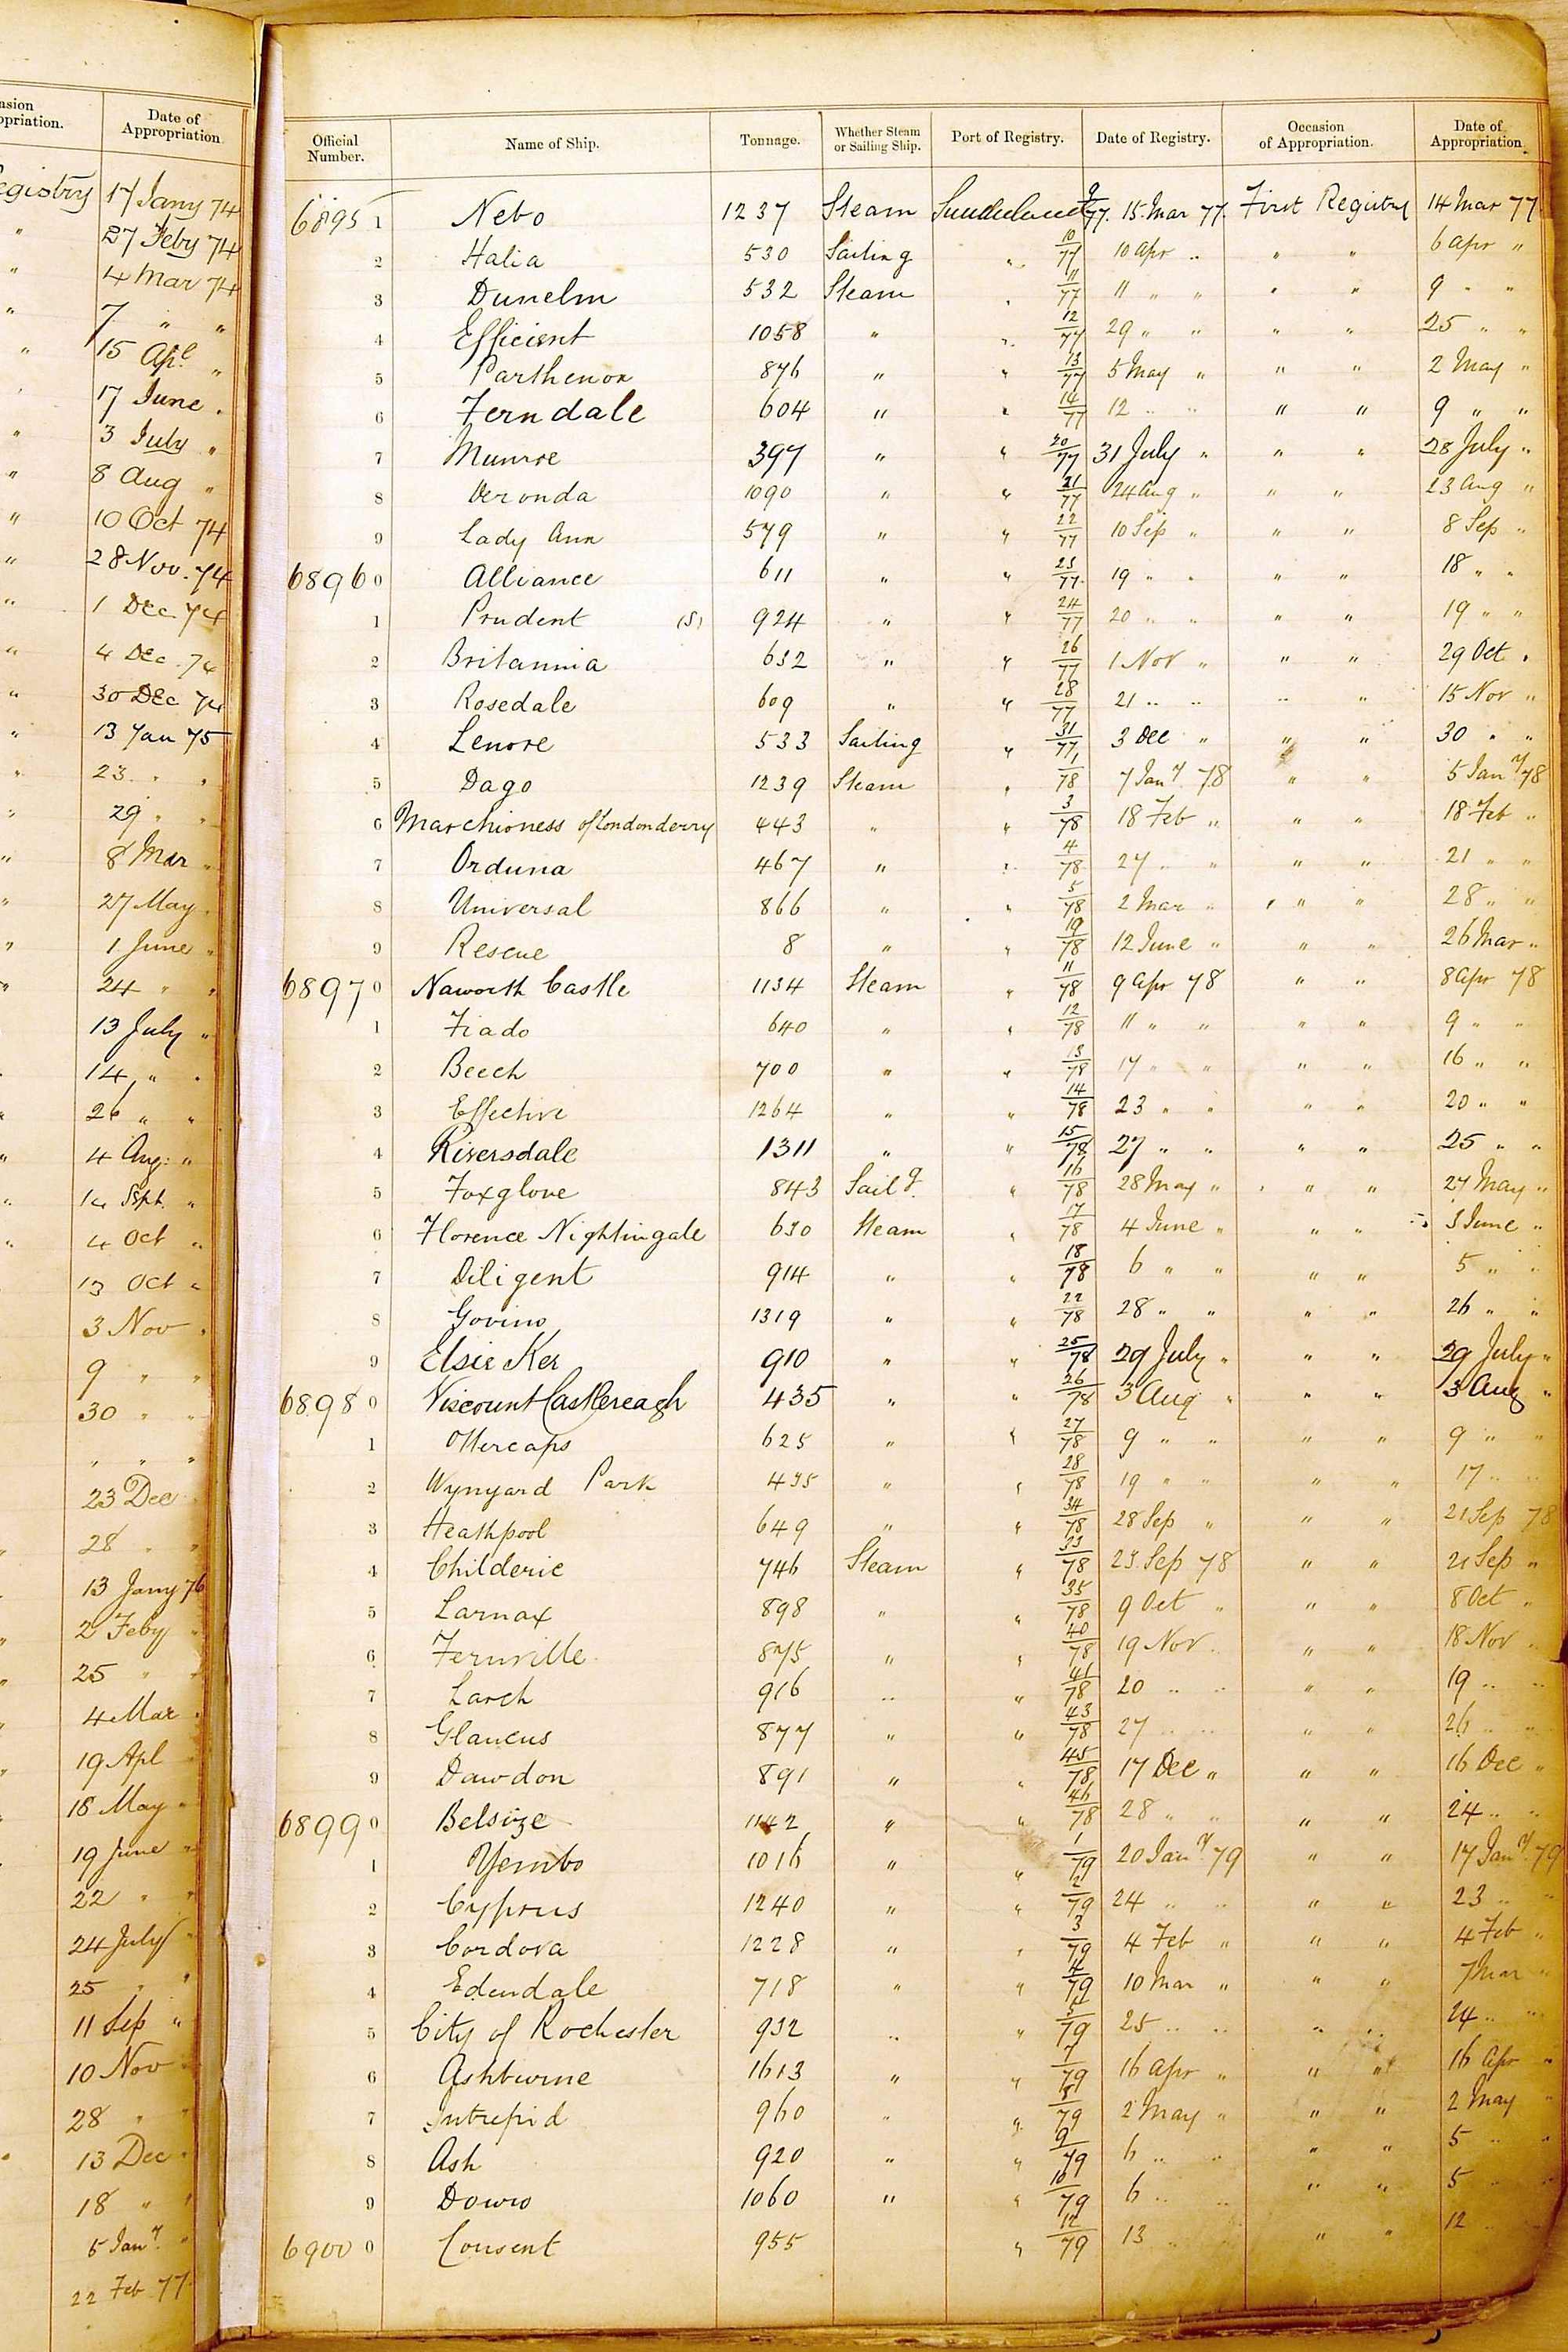 asion
opriation.
Date of
Appropriation
egistry 17 Jany 74
" 27 Feby 74
" 4 Mar 74
" 7 " "
" 15 Apl "
17 June "
" 3 July "
" 8 Aug "
" 10 Oct 74
" 28 Nov. 74
" 1 Dec 74
" 4 Dec. 74
" 30 Dec 74
" 13 Jan 75
" 23 " "
" 29 " "
" 8 Mar "
" 27 May "
" 1 June "
" 24 " "
13 July "
14 " "
26 " "
" 4 Aug: "
" 14 Sept. "
" 4 Oct "
13 Oct "
3 Nov "
9 " "
30 " "
" " "
23 Dec "
28 " "
13 Jany 76
2 Feby "
25 " "
4 Mar "
19 Apl "
18 May "
19 June "
22 " "
24 July "
25 " "
11 Sep "
10 Nov "
28 " "
13 Dec "
18 " "
5 Jany "
22 Feb 77
Official Number. Name of Ship. Tonnage. Whether Steam or Sailing Ship. Port of Registry. Date of Registry. Occasion of Appropriation. Date of Appropriation.
6895 1 Nebo 1237 Steam Sunderland 9/77. 15. Mar 77. First Registry 14 Mar 77
2 Halia 530 Sailing " 10/77 10 Apr " " " 6 Apr "
3 Dunelm 532 Steam " 11/77 11 " " " " 9 " "
4 Efficient 1058 " " 12/77 29 " " " " 25 " "
5 Parthenon 876 " " 13/77 5 May " " " 2 May "
6 Ferndale 604 " " 14/77 12 " " " " 9 " "
7 Munroe 397 " " 20/77 31 July " " " 28 July "
8 Veronda 1090 " " 21/77 24 Aug " " " 23 Aug "
9 Lady Ann 579 " " 22/77 10 Sep " " " 8 Sep "
6896 0 Alliance 611 " " 23/77 19 " " " " 18 " "
1 Prudent (S) 924 " " 24/77 20 " " " " 19 " "
2 Britannia 632 " " 26/77 1 Nov " " " 29 Oct "
3 Rosedale 609 " " 28/77 21 " " " " 15 Nov "
4 Lenore 533 Sailing " 31/77 3 Dec " " " 30 " "
5 Dago 1239 Steam " 1/78 7 Jany 78 " " 5 Jany 78
6 Marchioness of Londonderry 443 " " 3/78 18 Feb " " " 18 Feb "
7 Orduna 467 " " 4/78 27 " " " " 21 " "
8 Universal 866 " " 5/78 2 Mar " " " 28 " "
9 Rescue 8 " " 19/78 12 June " " " 26 Mar "
6897 0 Naworth Castle 1134 Steam " 11/78 9 Apr 78 " " 8 Apr 78
1 Fiado 640 " " 12/78 11 " " " " 9 " "
2 Beech 700 " " 13/78 17 " " " " 16 " "
3 Effective 1264 " " 14/78 23 " " " " 20 " "
4 Riversdale 1311 " " 15/78 27 " " " " 25 " "
5 Foxglove 843 Sailg. " 16/78 28 May " " " 27 May "
6 Florence Nightingale 630 Steam " 17/78 4 June " " " 3 June "
7 Diligent 914 " " 18/78 6 " " " " 5 " "
8 Govino 1319 " " 22/78 28 " " " " 26 " "
9 Elsie Ker 910 " " 25/78 29 July " " " 29 July "
6898 0 Viscount Castlereagh 435 " " 26/78 3 Aug " " " 3 Aug "
1 Ottercaps 625 " " 27/78 9 " " " " 9 " "
2 Wynyard Park 435 " " 28/78 19 " " " " 17 " "
3 Heathpool 649 " " 34/78 28 Sep " " " 21 Sep 78
4 Childeric 746 Steam " 33/78 23 Sep 78 " " 21 Sep "
5 Larnax 898 " " 35/78 9 Oct " " " 8 Oct "
6 Fernville 875 " " 40/78 19 Nov " " " 18 Nov "
7 Larch 916 " " 41/78 20 " " " " 19 " "
8 Glaucus 877 " " 43/78 27 " " " " 26 " "
9 Dawdon 891 " " 45/78 17 Dec " " " 16 Dec "
6899 0 Belsize 1142 " " 46/78 28 " " " " 24 " "
1 Yembo 1016 " " 1/79 20 Jany 79 " " 17 Jany 79
2 Cyprus 1240 " " 2/79 24 " " " " 23 " "
3 Cordova 1228 " " 3/79 4 Feb " " " 4 Feb "
4 Edendale 718 " " 4/79 10 Mar " " " 7 Mar "
5 City of Rochester 932 " " 5/79 25 " " " " 24 " "
6 Ashburne 1613 " " 7/79 16 Apr " " " 16 Apr "
7 Intrepid 960 " " 8/79 2 May " " " 2 May "
8 Ash 920 " " 9/79 6 " " " " 5 " "
9 Douro 1060 " " 10/79 6 " " " " 5 " "
6900 0 Consent 955 " 12/79 13 " " " " 12 " "